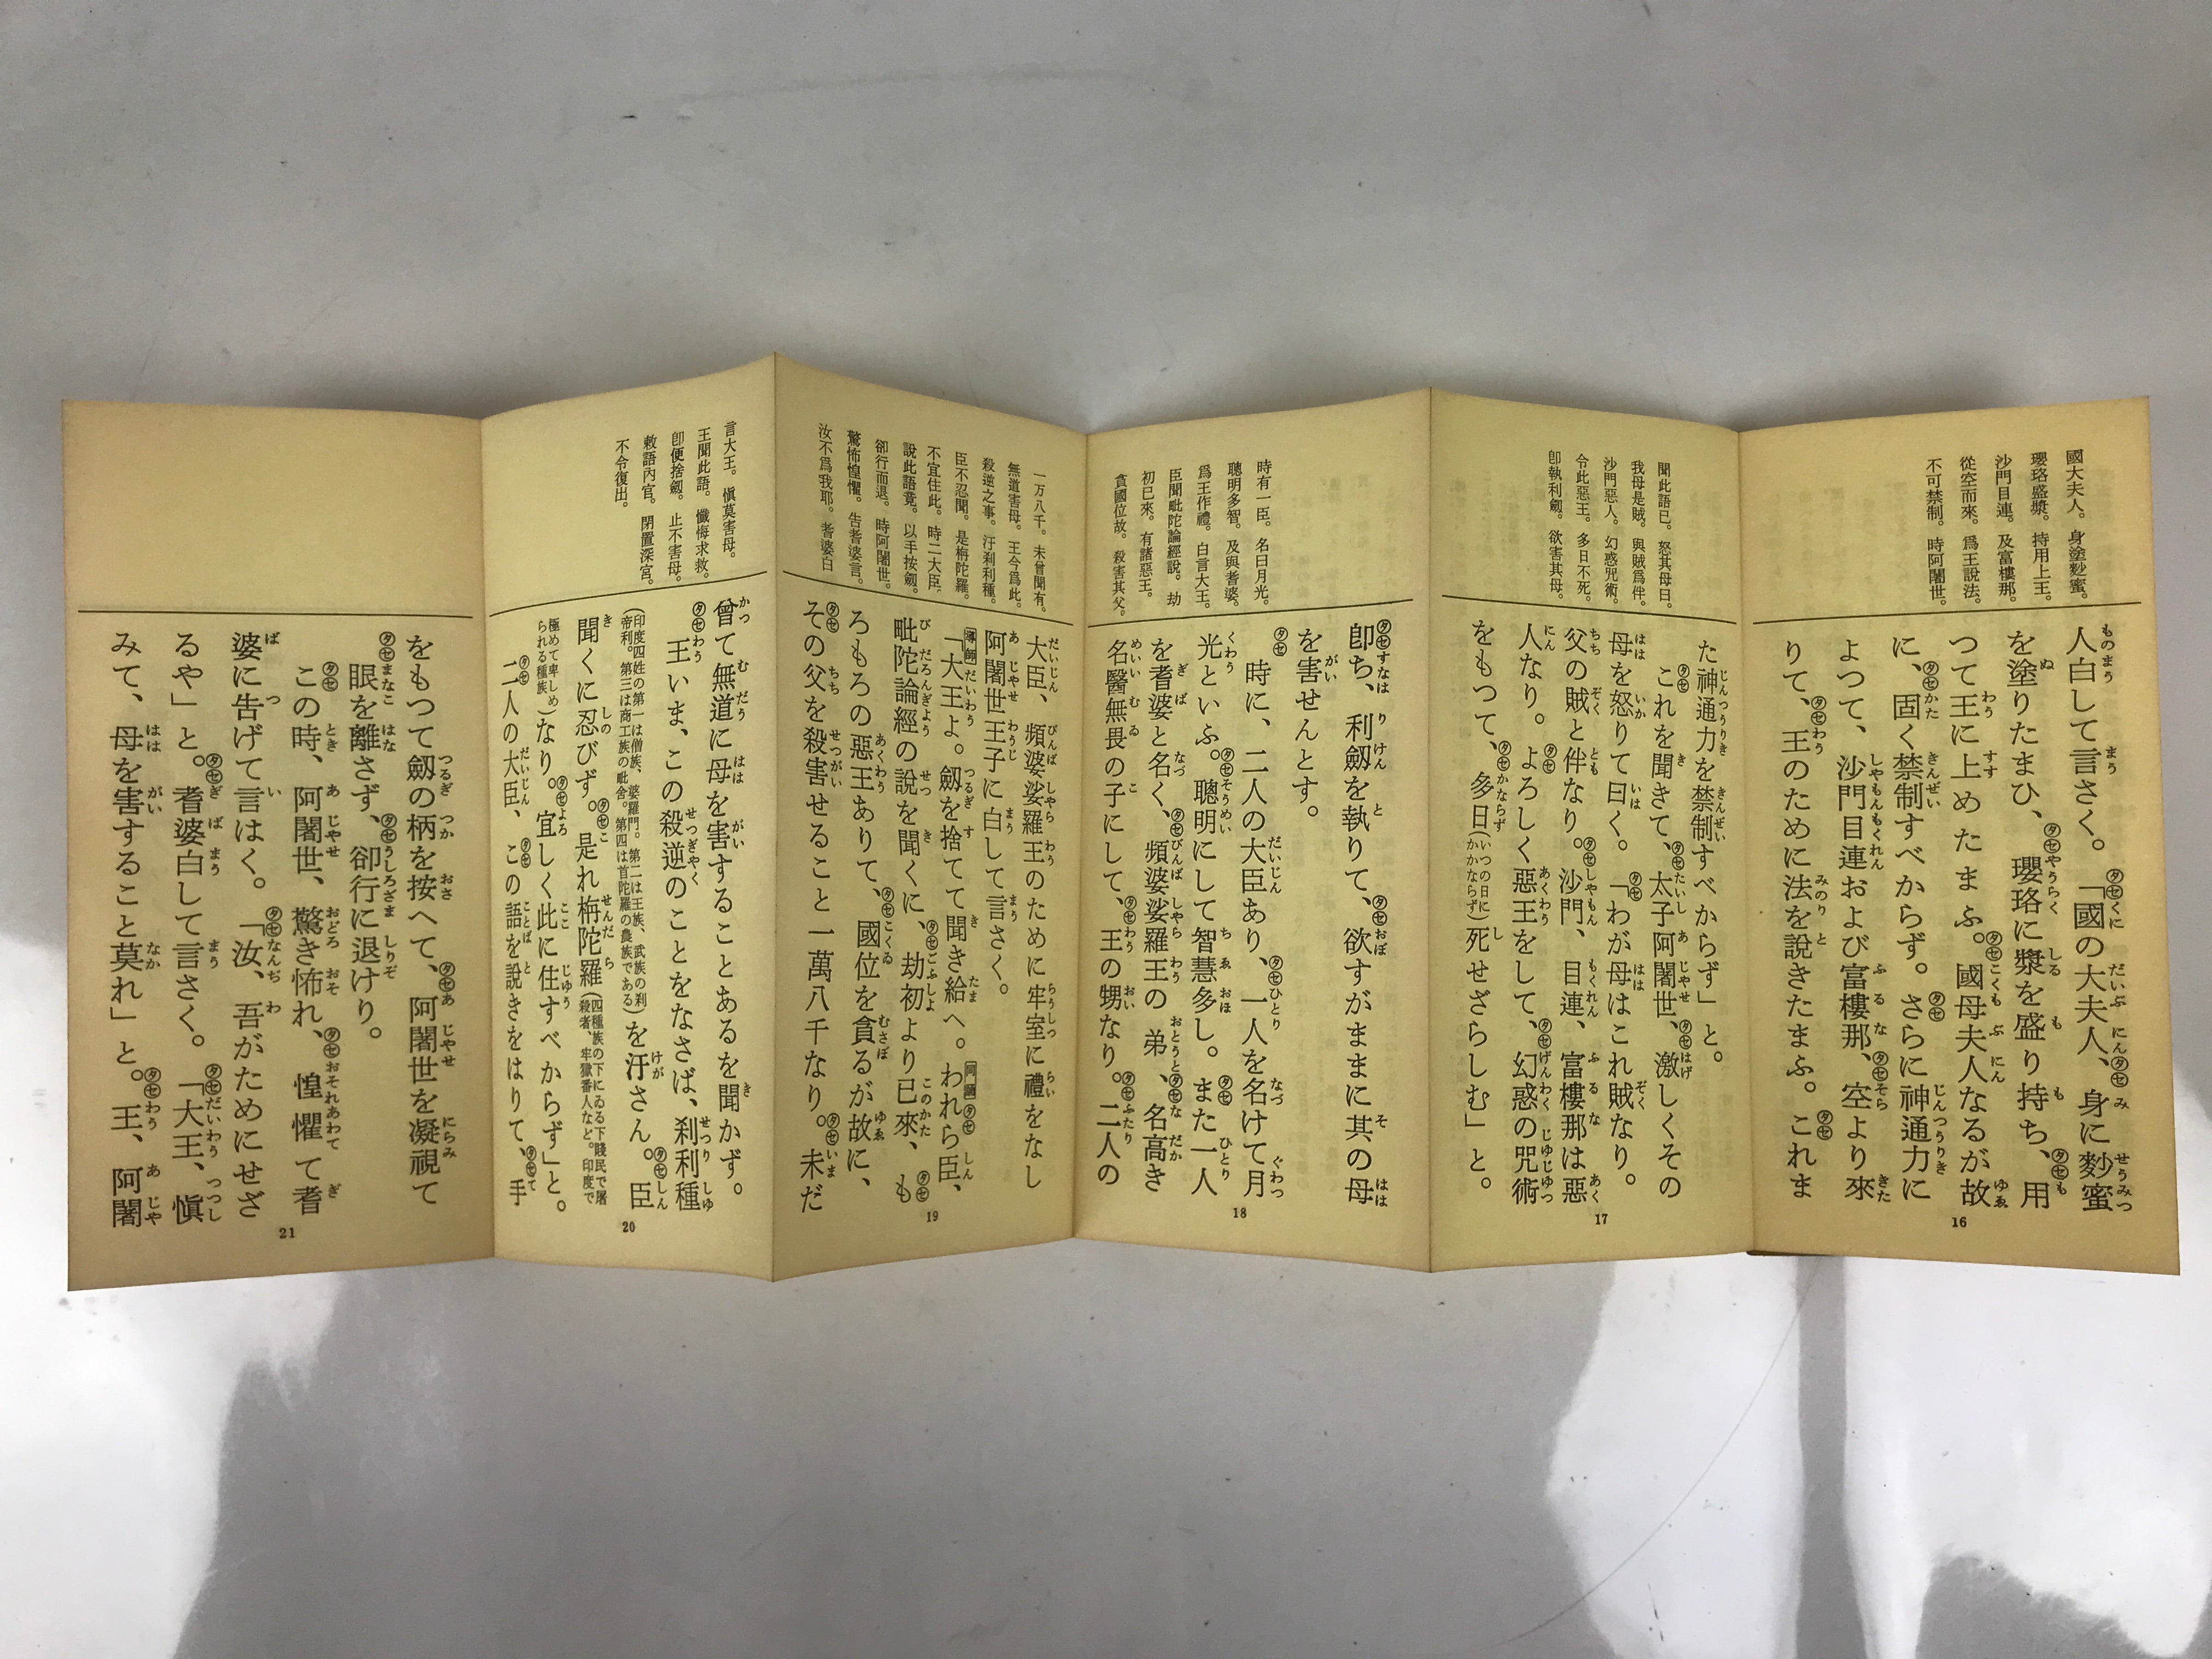 國大夫人。身塗麨蜜。
瓔珞盛漿。持用上王。
沙門目連。及富樓那。
從空而來。爲王說法。
不可禁制。時阿闍世。
人白して言さく。「國の大夫人、身に麨蜜
を塗りたまひ、瓔珞に漿を盛り持ち、用
つて王に上めたまふ。國母夫人なるが故
に、固く禁制すべからず。さらに神通力に
よつて、沙門目連および富樓那、空より來
りて、王のために法を說きたまふ。これま
16
聞此語已。怒其母曰。
我母是賊。與賊爲伴。
沙門惡人。幻惑咒術。
令此惡王。多日不死。
卽執利劔。欲害其母。
た神通力を禁制すべからず」と。
これを聞きて、太子阿闍世、激しくその
母を怒りて曰く。「わが母はこれ賊なり。
父の賊と伴なり。沙門、目連、富樓那は惡
人なり。よろしく惡王をして、幻惑の咒術
をもつて、多日(いつの日にかかならず)死せざらしむ」と。
17
卽ち、利劔を執りて、欲すがままに其の母
を害せんとす。
時有一臣。名曰月光。
聰明多智。及與耆婆。
爲王作禮。白言大王。
臣聞毗陀論經說。劫
初已來。有諸惡王。
貪國位故。殺害其父。
時に、二人の大臣あり、一人を名けて月
光といふ。聰明にして智慧多し。また一人
を耆婆と名く、頻婆娑羅王の弟、名高き
名醫無畏の子にして、王の甥なり。二人の
18
一万八千。未曾聞有。
無道害母。王今爲此。
殺逆之事。汙刹利種。
臣不忍聞。是栴陀羅。
不宜住此。時二大臣
說此語竟。以手按劔。
卻行而退。時阿闍世。
驚怖惶懼。告耆婆言。
汝不爲我耶。耆婆白
大臣、頻婆娑羅王のために牢室に禮をなし
阿闍世王子に白して言さく。
「大王よ。劔を捨てて聞き給へ。われら臣、
毗陀論經の說を聞くに、劫初より已來、も
ろもろの惡王ありて、國位を貪るが故に、
その父を殺害せること一萬八千なり。未だ
19
言大王。愼莫害母。
王聞此語。懺悔求救。
卽便捨劔。止不害母。
敕語內官。閉置深宮。
不令復出。
曾て無道に母を害することあるを聞かず。
王いま、この殺逆のことをなさば、刹利種
(印度四姓の第一は僧族、婆羅門。第二は王族、武族の刹
帝利。第三は商工族の毗舎。第四は首陀羅の農族である)を汙さん。臣
聞くに忍びず。是れ栴陀羅(四種族の下にゐる下賤民で屠
殺者、牢獄番人など。印度で
極めて卑しめ
られる種族)なり。宜しく此に住すべからず」と。
二人の大臣、この語を說きをはりて、手
20
をもつて劔の柄を按へて、阿闍世を凝視て
眼を離さず、卻行に退けり。
この時、阿闍世、驚き怖れ、惶懼て耆
婆に告げて言はく。「汝、吾がためにせざ
るや」と。耆婆白して言さく。「大王、愼
みて、母を害すること莫れ」と。王、阿闍
21